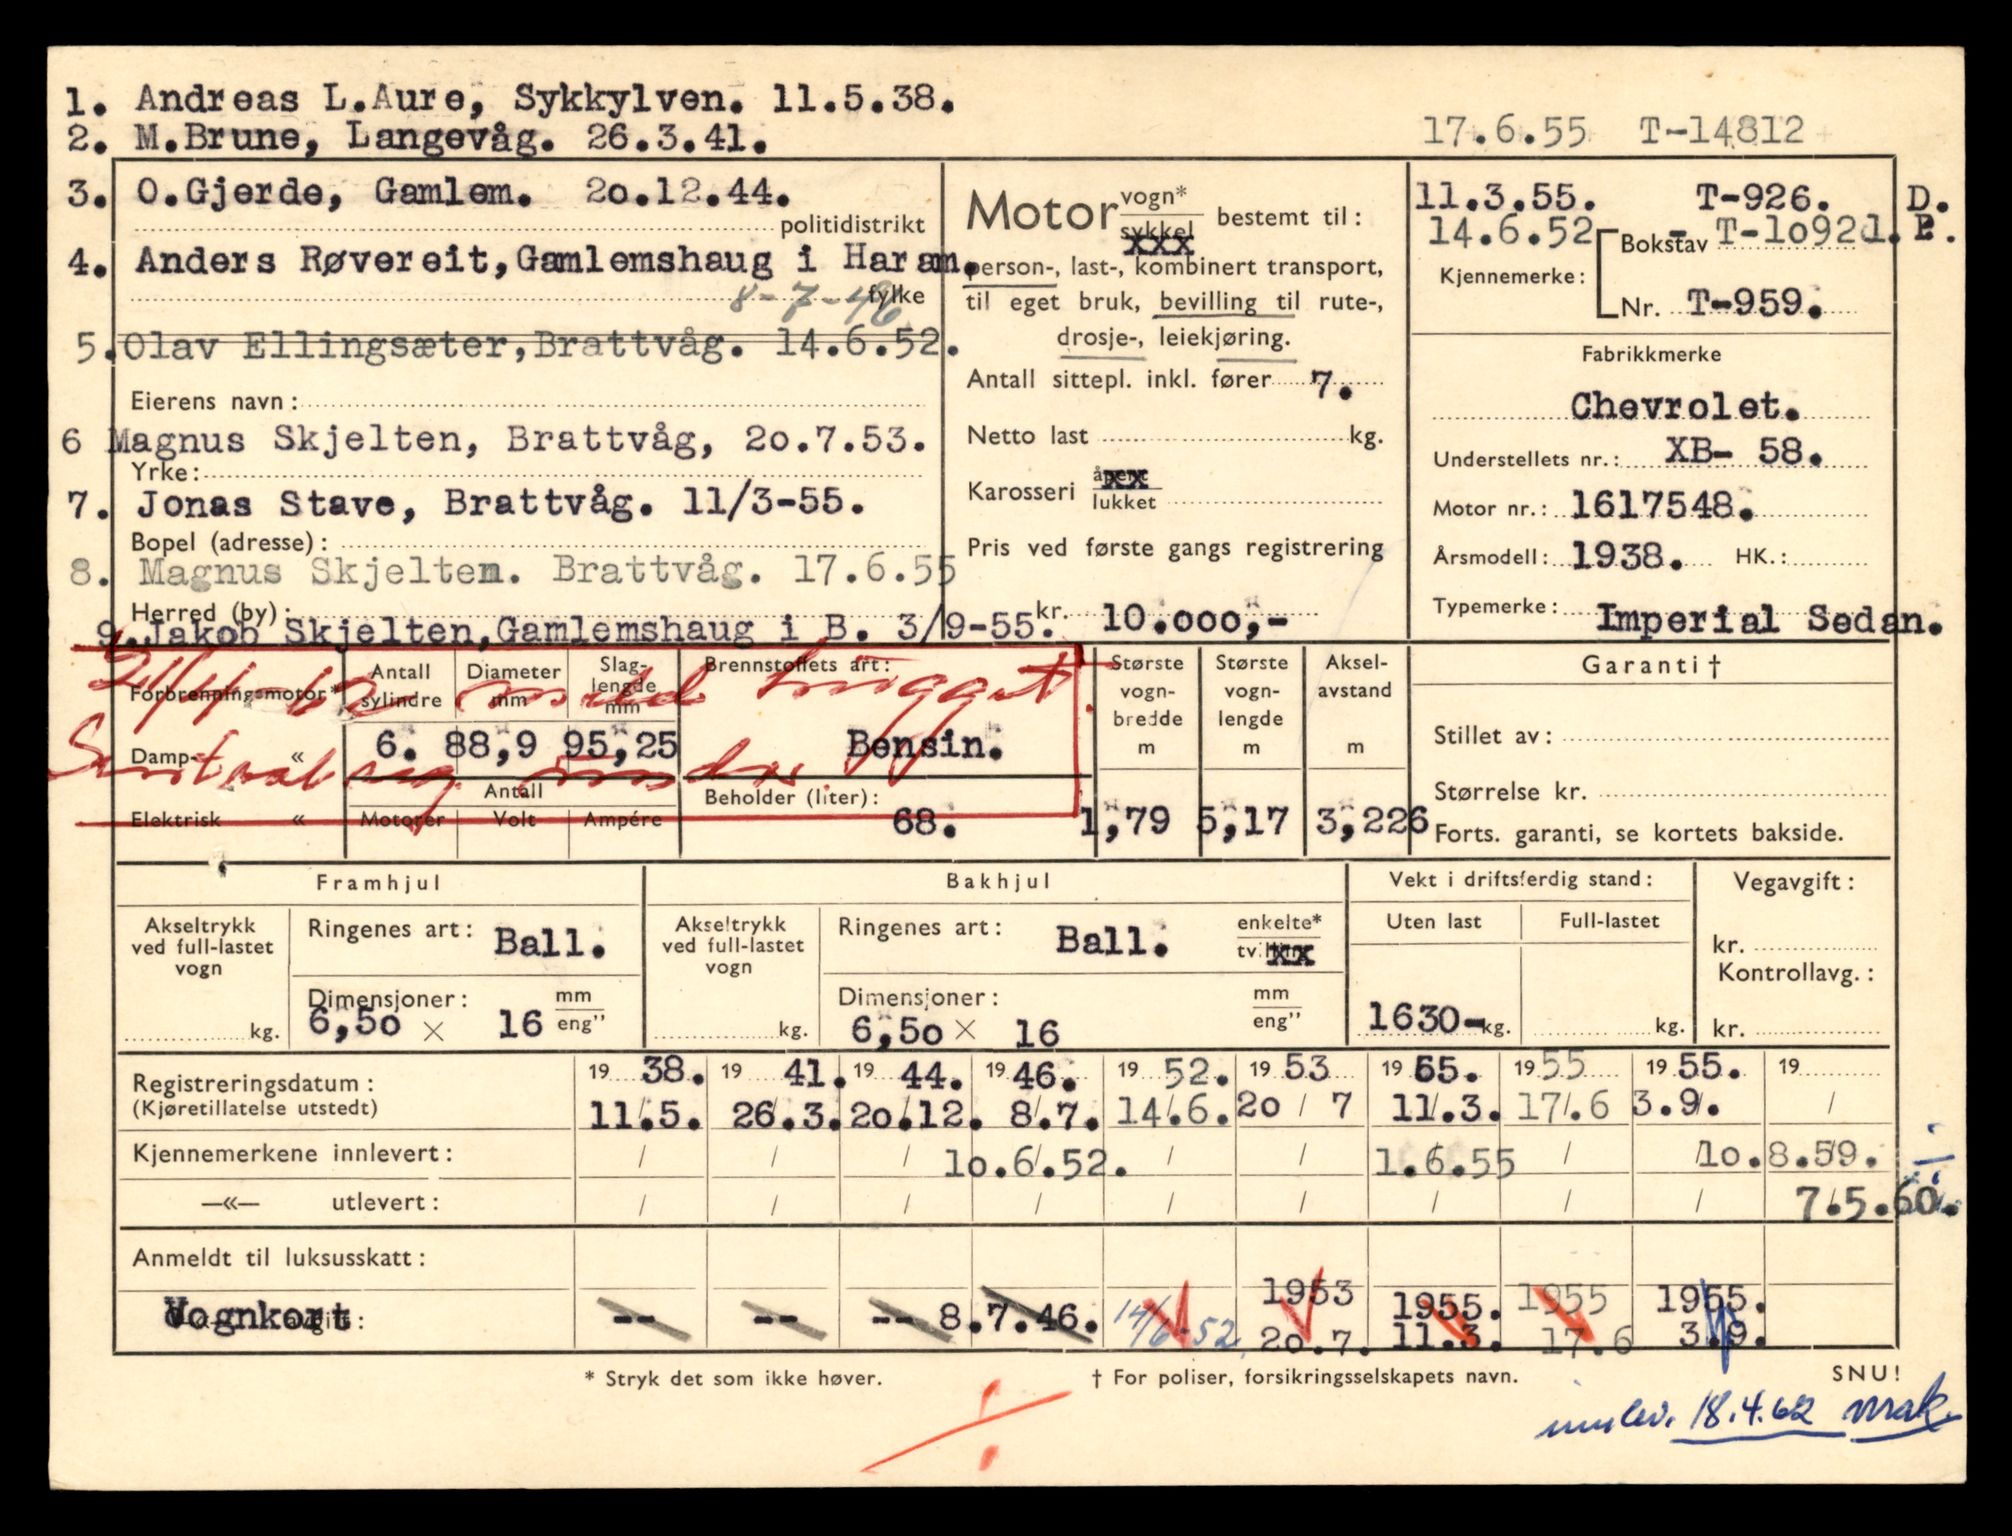 1. Andreas L.Aure, Sykkylven. 11.5.38.
2. M.Brune, Langevåg. 26.3.41.
17.6.55 T-14812
3. O.Gjerde, Gamlem. 20.12.44.
politidistrikt
4. Anders Røvereit,Gamlemshaug i Haram.
8-7-46 fylke
5. Olav Ellingsæter,Brattvåg. 14.6.52.
Eierens navn:
6 Magnus Skjelten, Brattvåg, 20.7.53.
Yrke:
7. Jonas Stave, Brattvåg. 11/3-55.
Bopel (adresse):
8. Magnus Skjelten. Brattvåg. 17.6.55
Herred (by):
9. Jakob Skjelten,Gamlemshaug i B. 3/9-55.
Motor vogn* sykkel bestemt til:
xxx
person-, last-, kombinert transport,
til eget bruk, bevilling til rute-,
drosje-, leiekjøring.
Antall sittepl. inkl. fører 7.
Netto last kg.
Karosseri åpent xx
lukket
Pris ved første gangs registrering
kr. 10.000,-
11.3.55. T-926. D.
14.6.52 - T-10921. P.
Bokstav
Kjennemerke:
Nr. T-959.
Fabrikkmerke
Chevrolet.
Understellets nr.: XB- 58.
Motor nr.: 1617548.
Årsmodell: 1938. HK.:
Typemerke: Imperial Sedan.
21/11-62 hugget
Forbrenningsmotor* Antall sylindre Diameter mm Slag-lengde mm Brennstoffets art:
Damp- « 6. 88,9 95,25 Bensin.
Antall
Elektrisk « Motorer Volt Ampére Beholder (liter): 68.
Største vogn-bredde m Største vogn-lengde m Aksel-avstand m
1,79 5,17 3,226
Garanti †
Stillet av:
Størrelse kr.
Forts. garanti, se kortets bakside.
Framhjul Bakhjul Vekt i driftsferdig stand: Vegavgift:
Akseltrykk ved full-lastet vogn kg.
Ringenes art: Ball.
Dimensjoner: mm
6,50 × 16 eng”
Akseltrykk ved full-lastet vogn kg.
Ringenes art: Ball. enkelte*
xx
Dimensjoner: mm
6,50 × 16 eng”
Uten last Full-lastet
1630- kg. kg.
kr.
Kontrollavg.:
kr.
Registreringsdatum: 19 38. 19 41. 19 44. 19 46. 19 52. 19 53 19 55. 19 55 19 55. 19
(Kjøretillatelse utstedt) 11.5. 26.3. 20.12. 8.7. 14.6. 20/7 11.3. 17.6 3.9. /
Kjennemerkene innlevert: / / / 10.6.52. / / 1.6.55 / 10.8.59.
—«— utlevert: / / / / / / / / / 7.5.60.
Anmeldt til luksusskatt:
Vognkort -- -- -- 8.7.46. 14/6-52. 1953 20.7. 1955. 11.3. 1955 17.6 1955. 3.9.
* Stryk det som ikke høver. † For poliser, forsikringsselskapets navn. SNU!
innlev. 18.4.62 vrak.